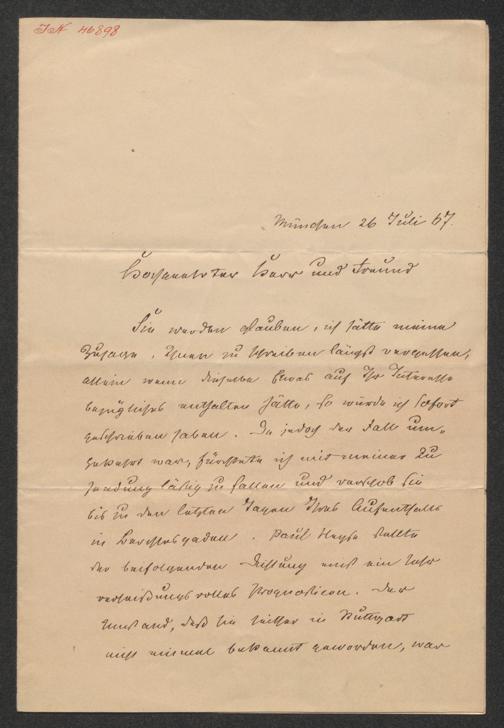 IN 46898
München 26 Juli 67.
Hochgeehrter Herr und Freund
Sie werden glauben, ich hätte meine
Zusage, Ihnen zu schreiben längst vergessen,
allein wenn dieselbe Etwas auf Ihr Interesse
bezügliches enthalten hätte, so würde ich sofort
geschrieben haben. Da jedoch der Fall um-
gekehrt war, fürchtete ich mit meiner Zu
sendung lästig zu fallen und verschob sie
bis zu den letzten Tagen Ihres Aufenthalts
in Berchtesgaden. Paul Heyse stellte
der beifolgenden Dichtung erst ein sehr
verheißungsvolles Prognosticon. Der
Umstand, daß sie bisher in Stuttgart
nicht einmal bekannt geworden, war